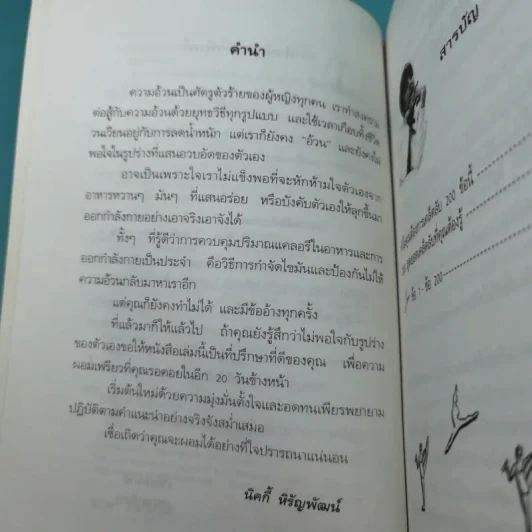 คำนำ
ความอ้วนเป็นศัตรูตัวร้ายของผู้หญิงทุกคน เรากำลัง
ต่อสู้กับความอ้วนด้วยยุทธวิธีทุกรูปแบบ และใช้เวลาเกือบทั้งชีวิต
วนเวียนอยู่กับการลดน้ำหนัก แต่เราก็ยังคง "อ้วน" และยังคงไม่
พอใจในรูปร่างที่แสนอวบอัดของตัวเอง
อาจเป็นเพราะใจเราไม่แข็งพอที่จะหักห้ามใจตัวเองจาก
อาหารหวานๆ มันๆ ที่แสนอร่อย หรือบังคับตัวเองให้ลุกขึ้นมา
ออกกำลังกายอย่างเอาจริงเอาจังได้
ทั้งๆ ที่รู้ดีว่าการควบคุมปริมาณแคลอรีในอาหารและการ
ออกกำลังกายเป็นประจำ คือวิธีการกำจัดไขมันและป้องกันไม่ให้
ความอ้วนกลับมาหาเราอีก
แต่คุณก็ยังคงทำไม่ได้ และมีข้ออ้างทุกครั้ง
ที่แล้วมาก็ให้แล้วไป ถ้าคุณยังรู้สึกว่าไม่พอใจกับรูปร่าง
ของตัวเองขอให้หนังสือเล่มนี้เป็นที่ปรึกษาที่ดีของคุณ เพื่อความ
ผอมเพรียวที่คุณรอคอยในอีก 20 วันข้างหน้า
เริ่มต้นใหม่ด้วยความมุ่งมั่นตั้งใจและอดทนเพียรพยายาม
ปฏิบัติตามคำแนะนำอย่างจริงจังสม่ำเสมอ
เชื่อเถิดว่าคุณจะผอมได้อย่างที่ใจปรารถนาแน่นอน
นิคกี้ หิรัญพัฒน์
สารบัญ
200 ข้อนี้
ที่คุณต้องรู้
ข้อ 1 - ข้อ 200